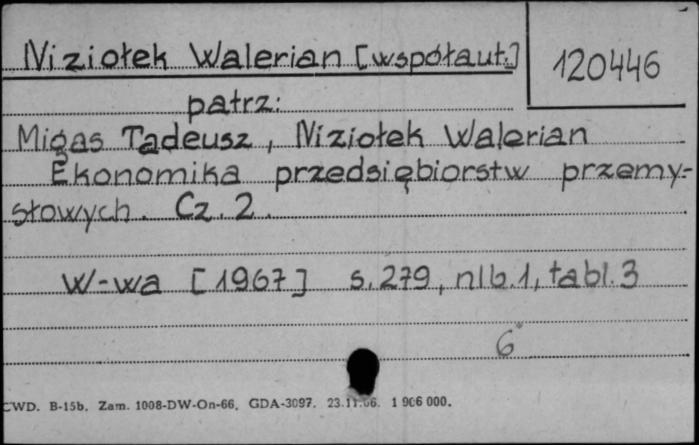 Niziołek Walerian [współaut.]
120446
patrz:
Migas Tadeusz, Niziołek Walerian
Ekonomika przedsiębiorstw przemy-
słowych. Cz. 2.
W-wa [1967] s. 279, nlb. 1, tabl. 3
6°
CWD. B-15b. Zam. 1008-DW-On-66. GDA-3097. 23.11.66. 1 906 000.